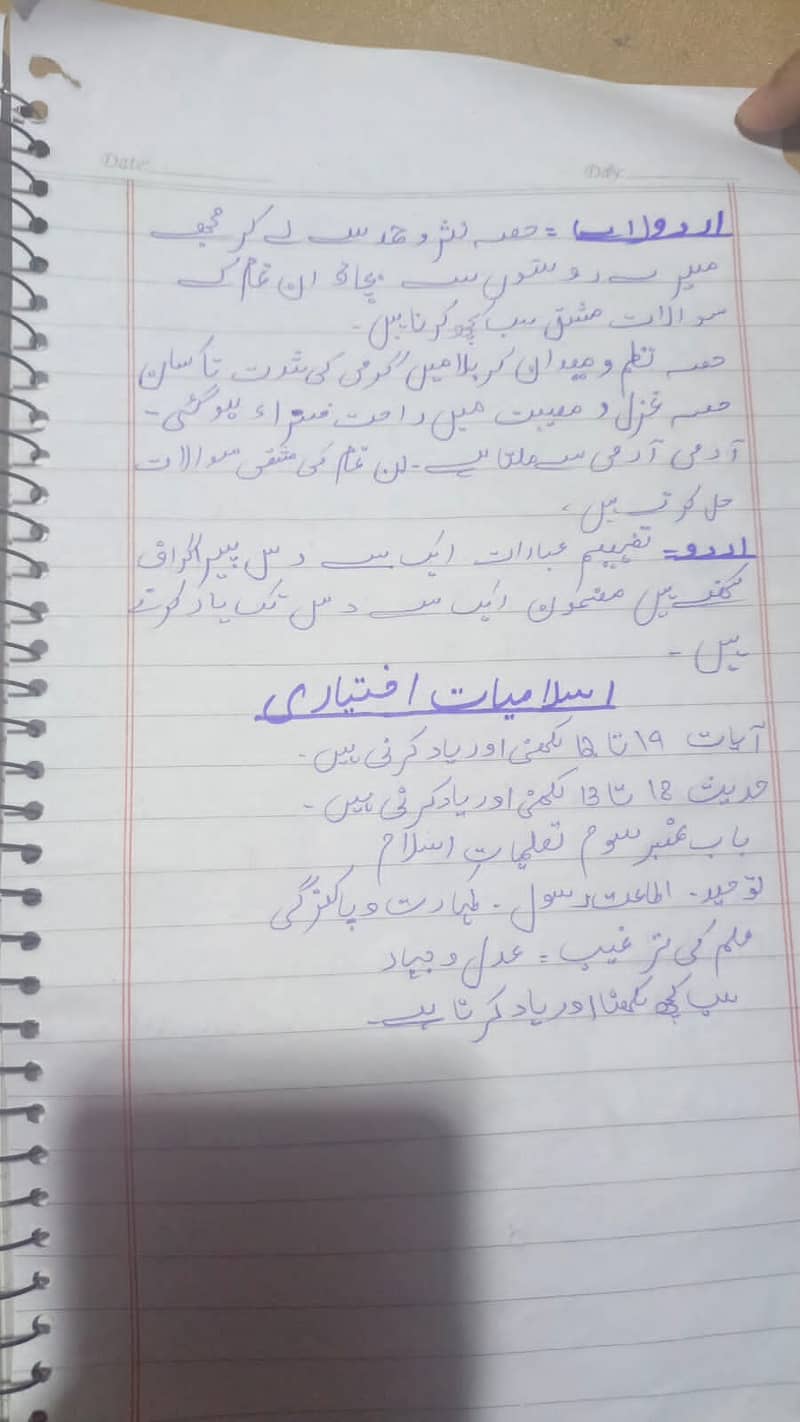 Date
Day
اردو (اے) = حصہ نثر و حمد سے لے کر مجھے
میرے دوستوں سے بچاؤ ان تمام کے
سوالات مشق سب کچھ کرنا ہیں۔
حصہ نظم و میدان کربلا میں گرمی کی شدت تا کسان
حصہ غزل و مصیبت میں راحت فزاء ہو گئی۔
آدمی آدمی سے ملتا ہے۔ ان تمام کی مشقی سوالات
حل کرتے ہیں۔
اردو = تفہیم عبارات ایک سے دس پیراگراف
لکھنے ہیں مضمون ایک سے دس تک یاد کرتے
ہیں۔
اسلامیات اختیاری
آیات 19 تا 12 لکھنی اور یاد کرنی ہیں۔
حدیث 18 تا 13 لکھنی اور یاد کرنی ہیں۔
باب نمبر سوم تعلیمات اسلام
توحید۔ اطاعت رسول۔ طہارت و پاکیزگی
علم کی ترغیب = عدل و جہاد
سب کچھ لکھنا اور یاد کرنا ہے